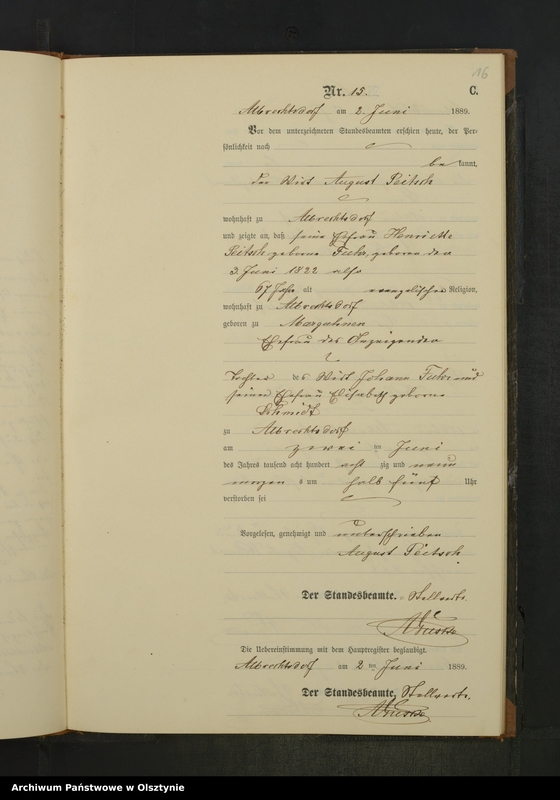 16
Nr. 15. C.
Albrechtsdorf am 2. Juni 1889.
Vor dem unterzeichneten Standesbeamten erschien heute, der Per-
sönlichkeit nach
be kannt,
der Wirt August Peitsch
wohnhaft zu Albrechtsdorf
und zeigte an, daß seine Ehefrau Henriette
Peitsch geborne geboren den
3. Juni 1822 also
67 Jahr alt evangelischer Religion,
wohnhaft zu Albrechtsdorf
geboren zu
Ehefrau des Anzeigenden
Tochter des Wirt Johann und
seiner Ehefrau Elisabeth geborne
Schmidt
zu Albrechtsdorf
am zwei ten Juni
des Jahres tausend acht hundert acht zig und neun
morgen s um halb fünf Uhr
verstorben sei
Vorgelesen, genehmigt und unterschrieben
August Peitsch.
Der Standesbeamte. Stellvertr.
Die Uebereinstimmung mit dem Hauptregister beglaubigt.
Albrechtsdorf am 2 ten Juni 1889.
Der Standesbeamte, Stellvertr.
Archiwum Państwowe w Olsztynie